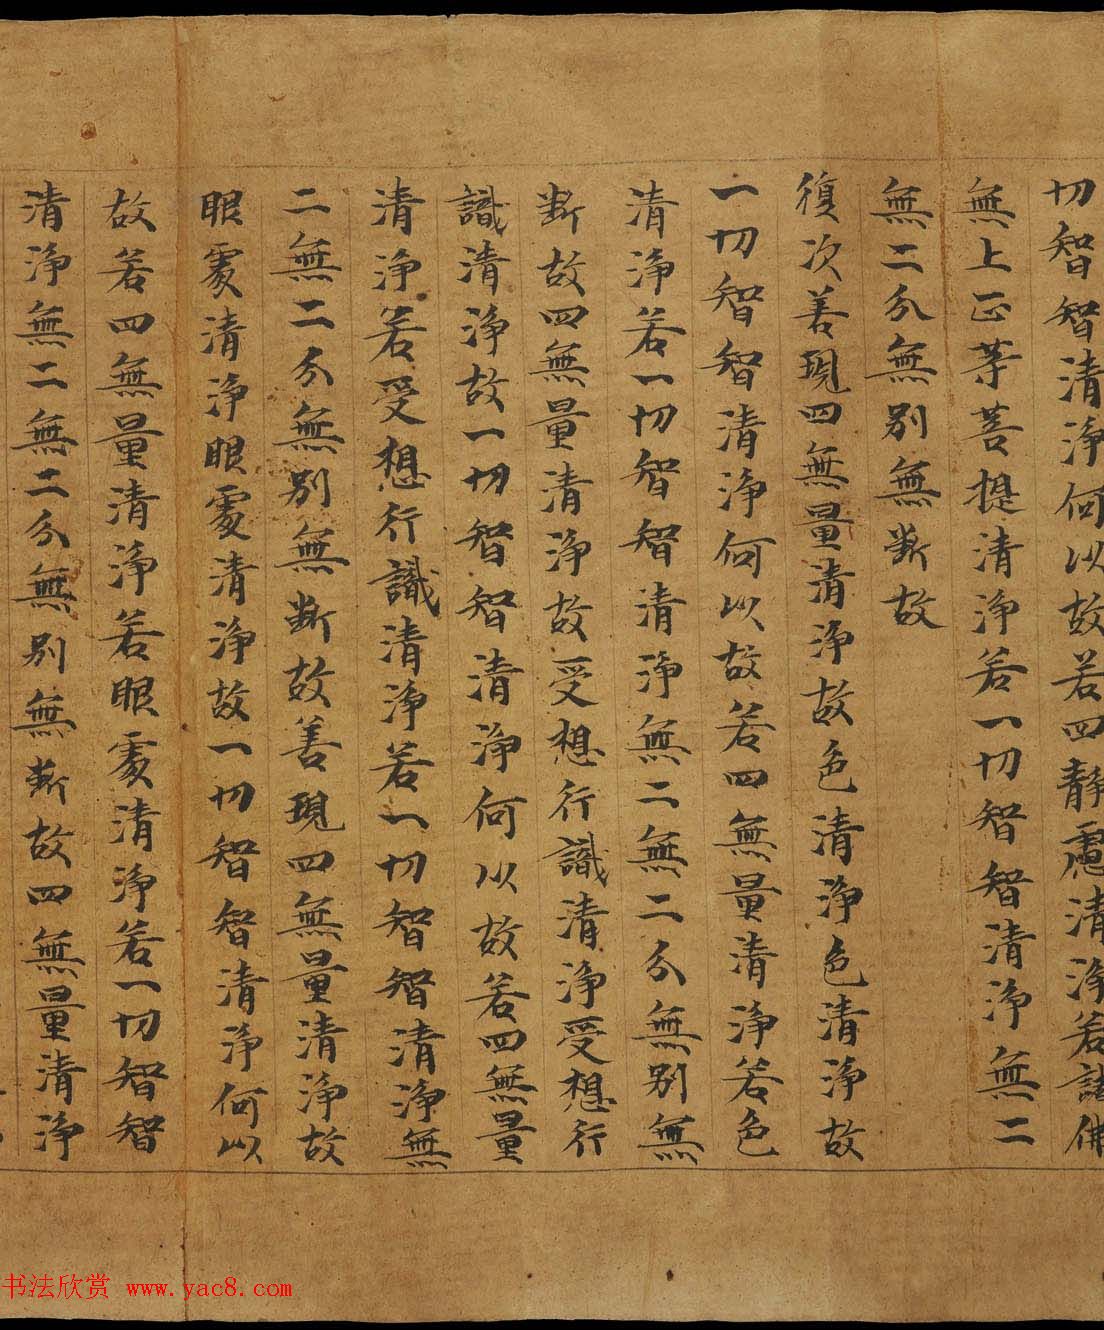 切智智清淨何以故若四靜慮清淨若諸佛
無上正等菩提清淨若一切智智清淨無二
無二分無別無斷故
復次善現四無量清淨故色清淨色清淨故
一切智智清淨何以故若四無量清淨若色
清淨若一切智智清淨無二無二分無別無
斷故四無量清淨故受想行識清淨受想行
識清淨故一切智智清淨何以故若四無量
清淨若受想行識清淨若一切智智清淨無
二無二分無別無斷故善現四無量清淨故
眼處清淨眼處清淨故一切智智清淨何以
故若四無量清淨若眼處清淨若一切智智
清淨無二無二分無別無斷故四無量清淨
书法欣赏 www.yac8.com